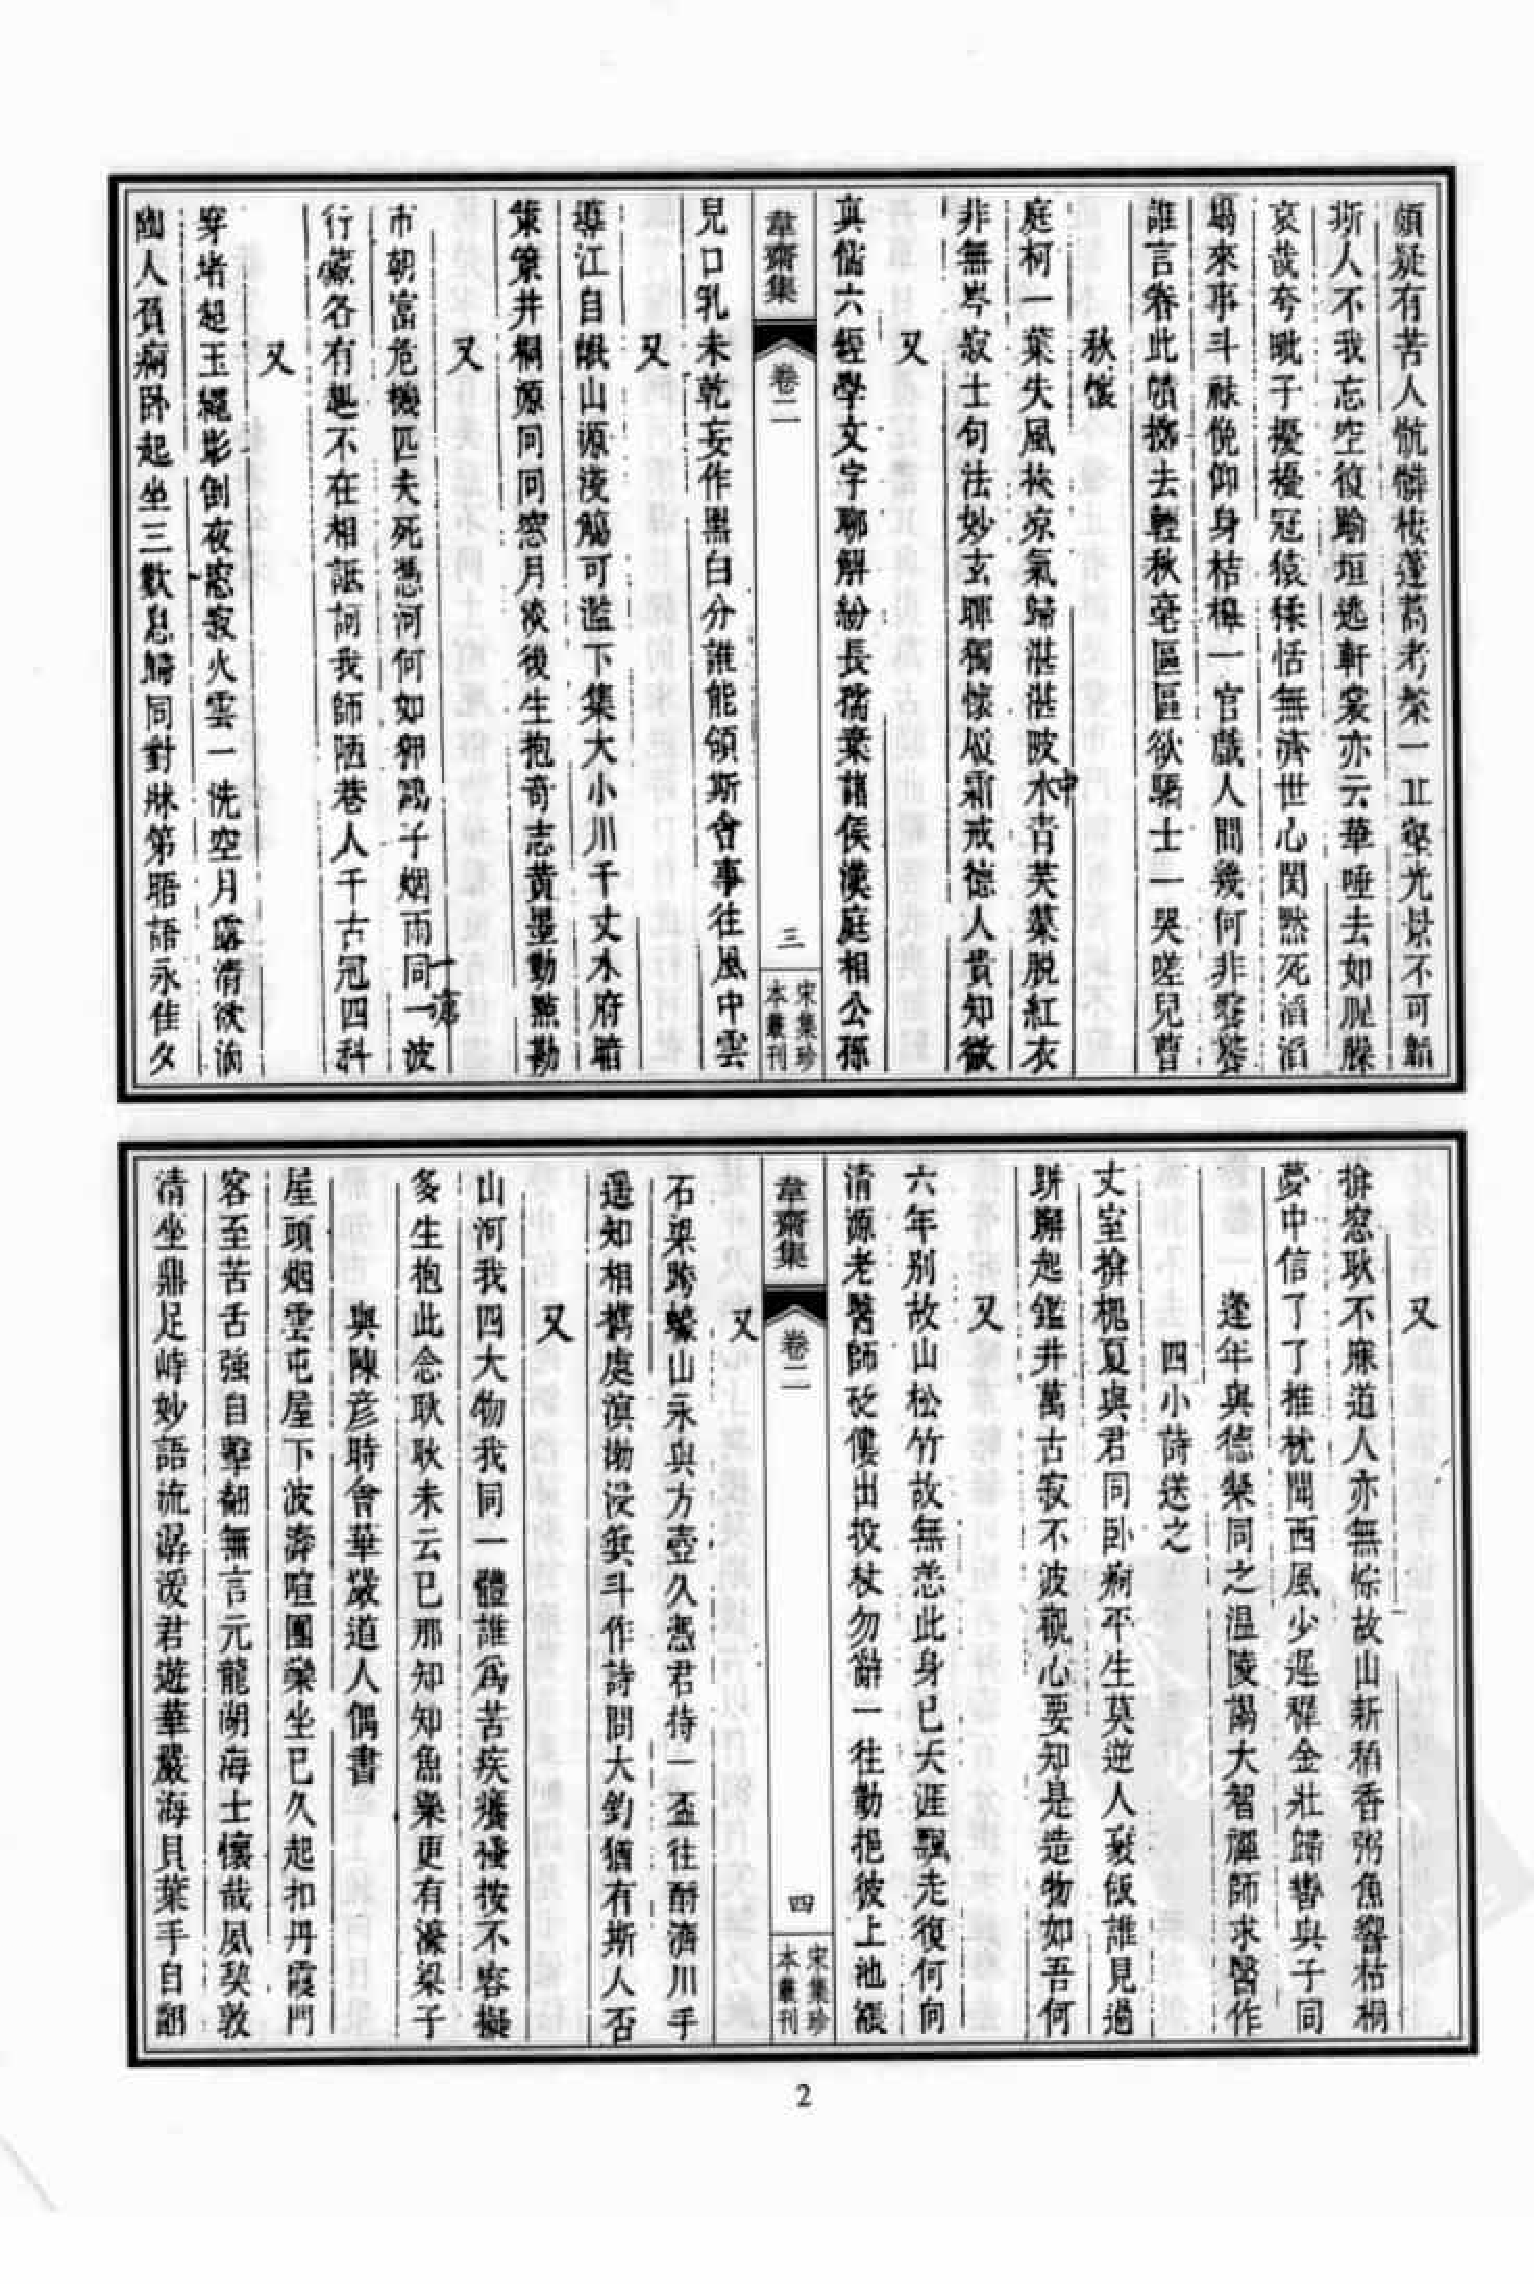 頗疑有苦人骯髒棲蓬蒿考槃一丘壑光景不可韜
斯人不我忘空復踰垣逃軒裳亦云華唾去如腥臊
哀哉夸毗子擾擾冠猿猱恬無濟世心閔默死滔滔
朅來事斗祿俛仰身桔橰一官戲人間幾何非嗸嗸
誰言脊此幘擲去輕秋毫區區欲驕士一哭嗟兒曹
秋懷
庭柯一葉失風挾凉氣歸湛湛陂水青芙蕖脫紅衣
中
非無岑寂士句法妙玄暉獨懷履霜戒德人貴知微
又
真儒六經學文字聊解紛長孺棄諸侯漢庭相公孫
韋齋集
卷二
三
宋集珍
本叢刊
兒口乳未乾妄作黑白分誰能領斯會事往風中雲
又
導江自岷山源淺觴可濫下集大小川千丈水府暗
策策井桐凉同同窓月淡後生抱奇志黄墨勤點勘
又
市朝富危機匹夫死憑河何如卯鳥子烟雨同一波
一蓑
行藏各有趣不在相詆訶我師陋巷人千古冠四科
又
穿堵起玉繩影倒夜窓寂火雲一洗空月露清欲滴
幽人負病卧起坐三歎息歸同對牀第晤語永佳夕
又
擁窓耿不寐道人亦無悰故山新稻香粥魚響枯桐
夢中信了了推枕聞西風少遲稺金壯歸轡與子同
逢年與德粲同之温陵謁大智禪師求醫作
四小詩送之
丈室擁楓夏與君同卧痾平生莫逆人裹飯誰見過
跰𨇤起鑑井萬古寂不波觀心要知是造物如吾何
又
六年别故山松竹故無恙此身已天涯飄走復何向
清源老醫師砭僂出投杖勿辭一往勤挹彼上池漲
韋齋集
卷二
四
宋集珍
本叢刊
又
石梁跨鯨山永與方壺久憑君持一盃往酹濟川手
遥知相攜處溟渤浸箕斗作詩問大釣猶有斯人否
又
山河我四大物我同一體誰爲苦疾癢搔按不容擬
多生抱此念耿耿未云已那知知魚樂更有濠梁子
與陳彦時會華嚴道人偶書
屋頭烟雲屯屋下波濤喧團欒坐已久起扣丹霞門
客至苦舌強自擊翻無言元龍湖海士懷哉夙契敦
清坐鼎足峙妙語流潺湲君遊華嚴海貝葉手自翻
2